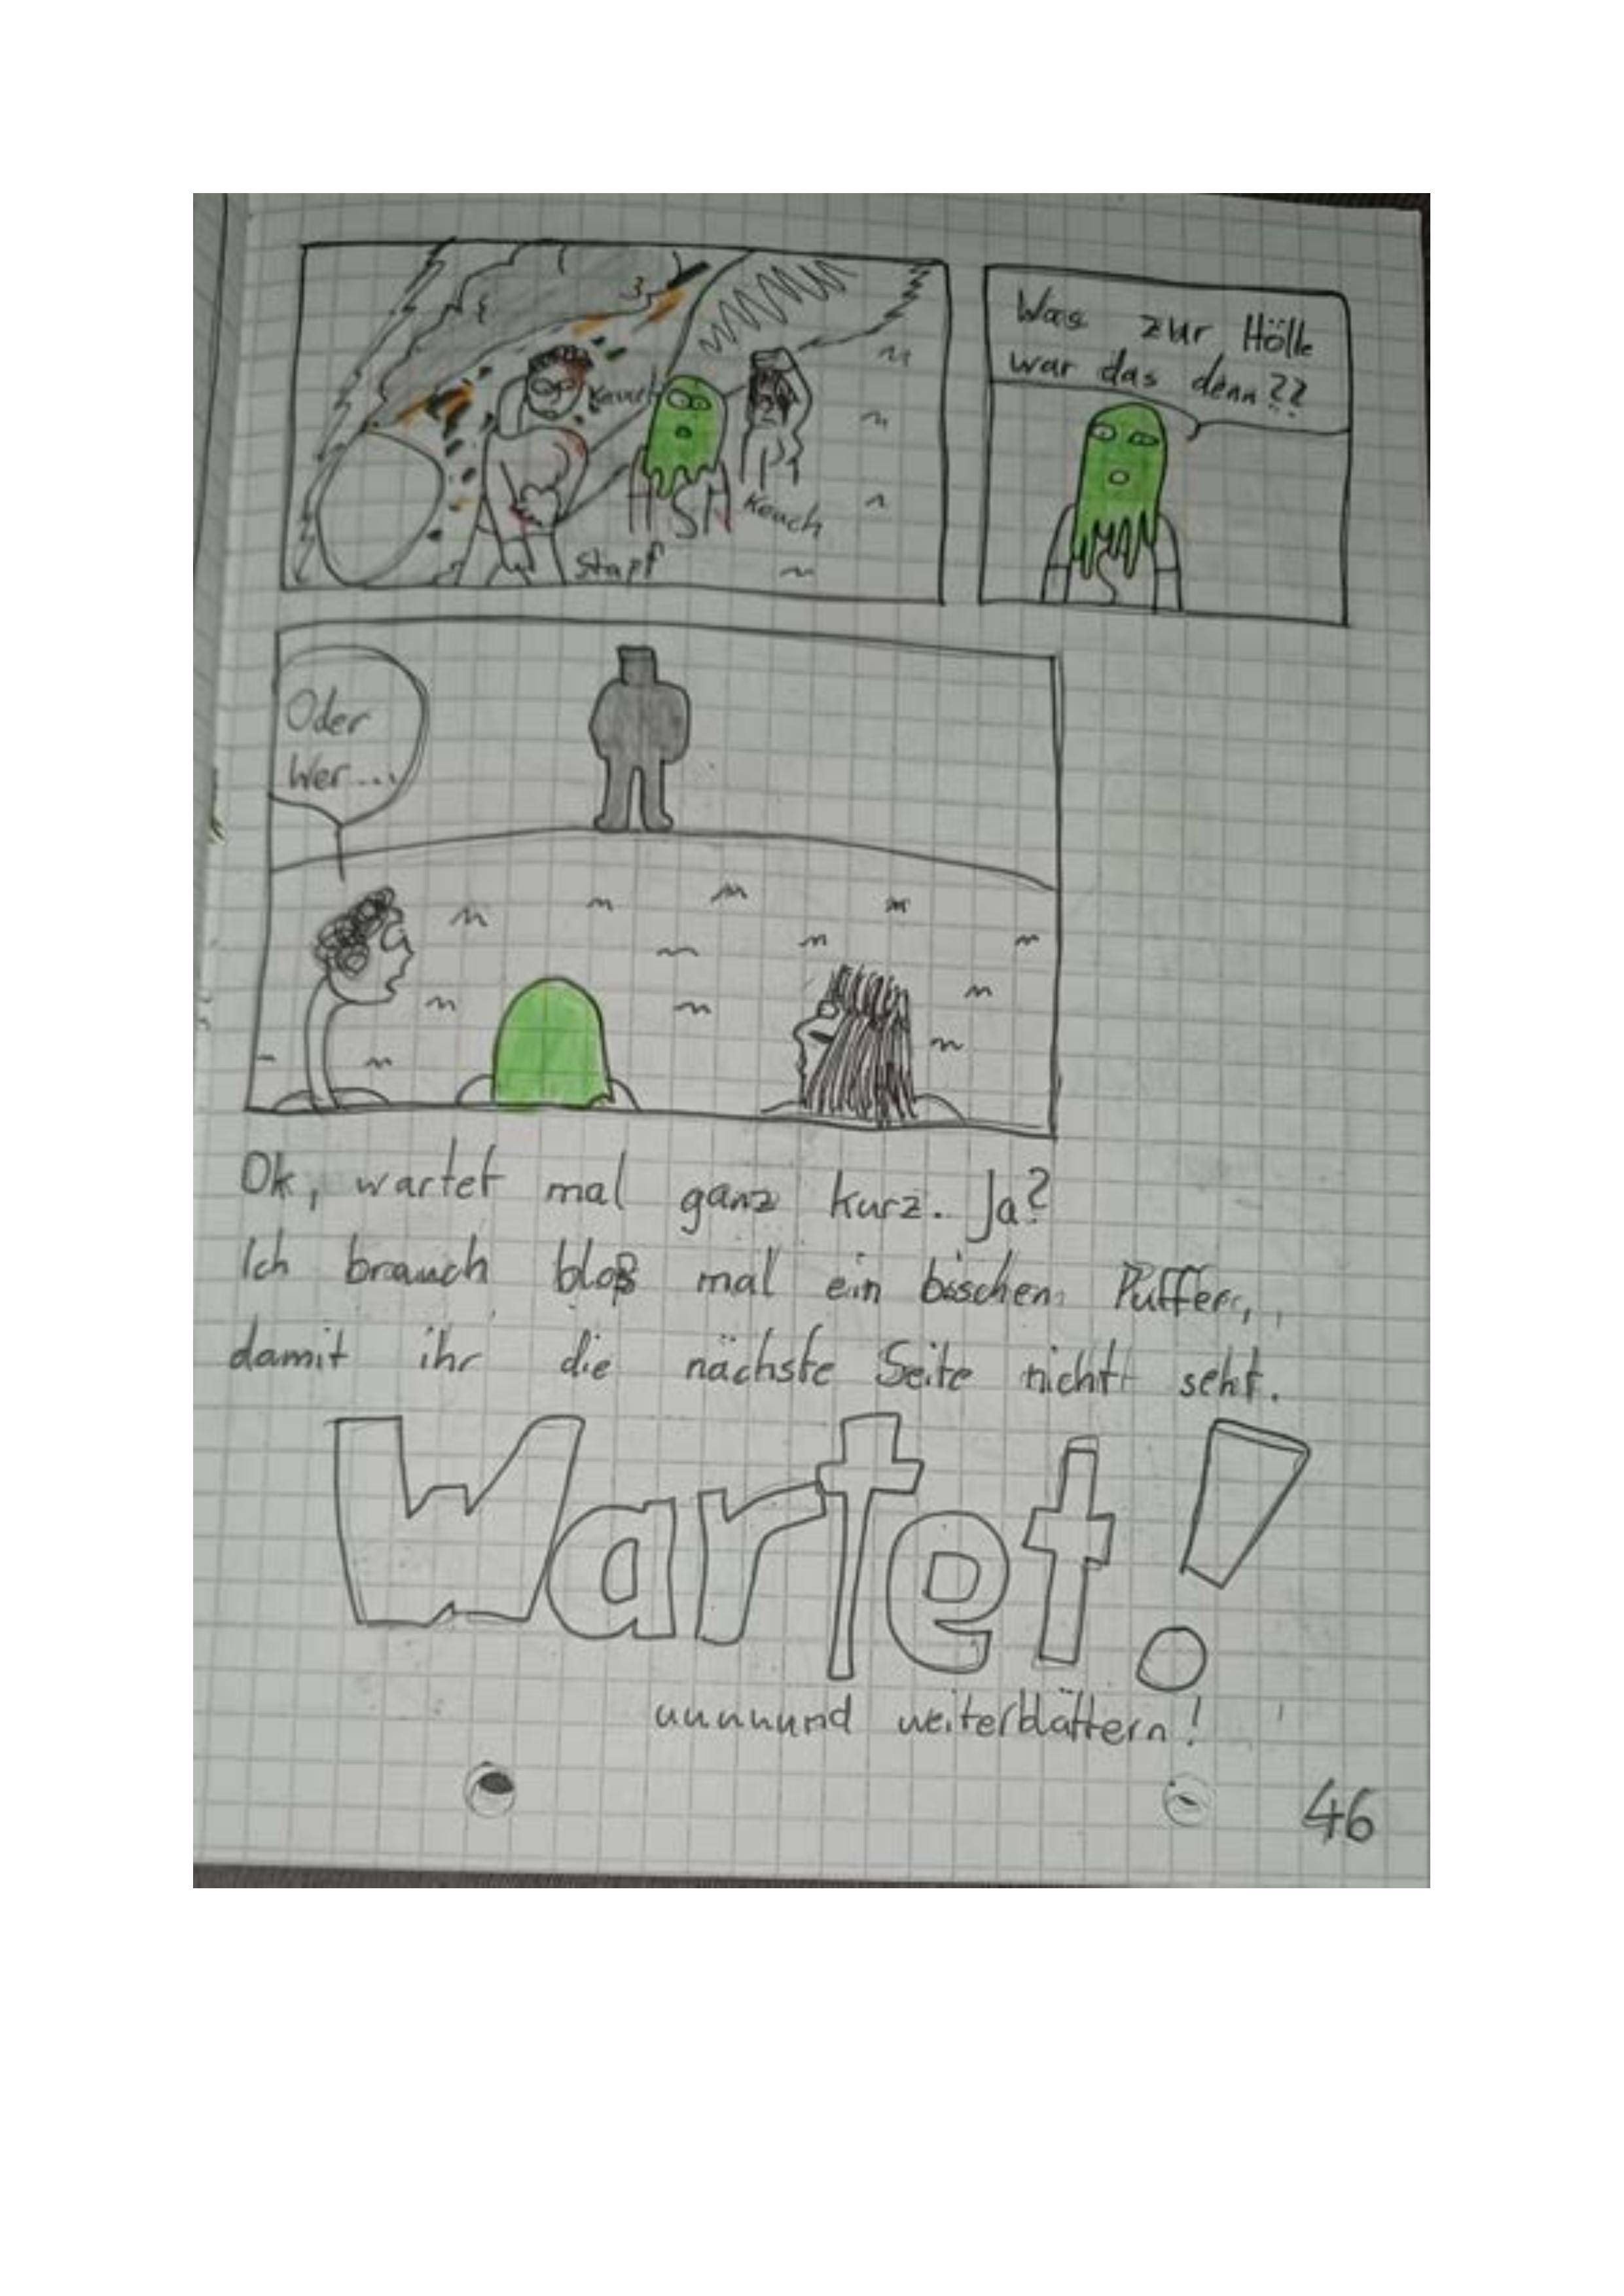 Keuch
Keuch
Stapf
Was zur Hölle
war das denn??
Oder
Wer....
Ok, wartet mal ganz kurz. Ja?
Ich brauch bloß mal ein bischen Puffer,
damit ihr die nächste Seite nicht seht.
Wartet!
uuuuuund weiterblättern!
46